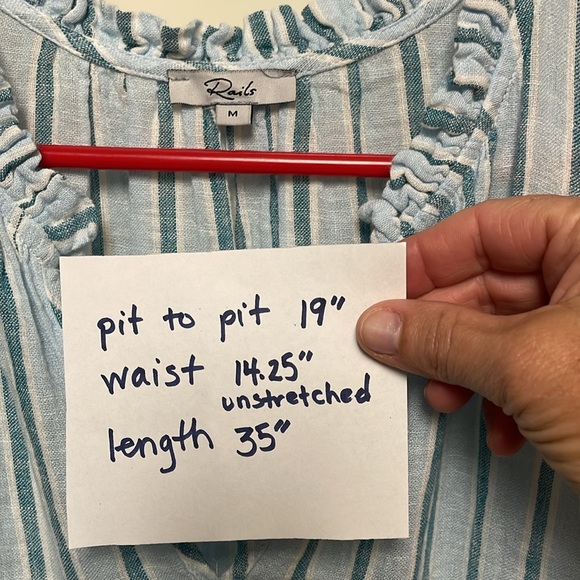 Rails
M
pit to pit 19"
waist 14.25"
unstretched
length 35"